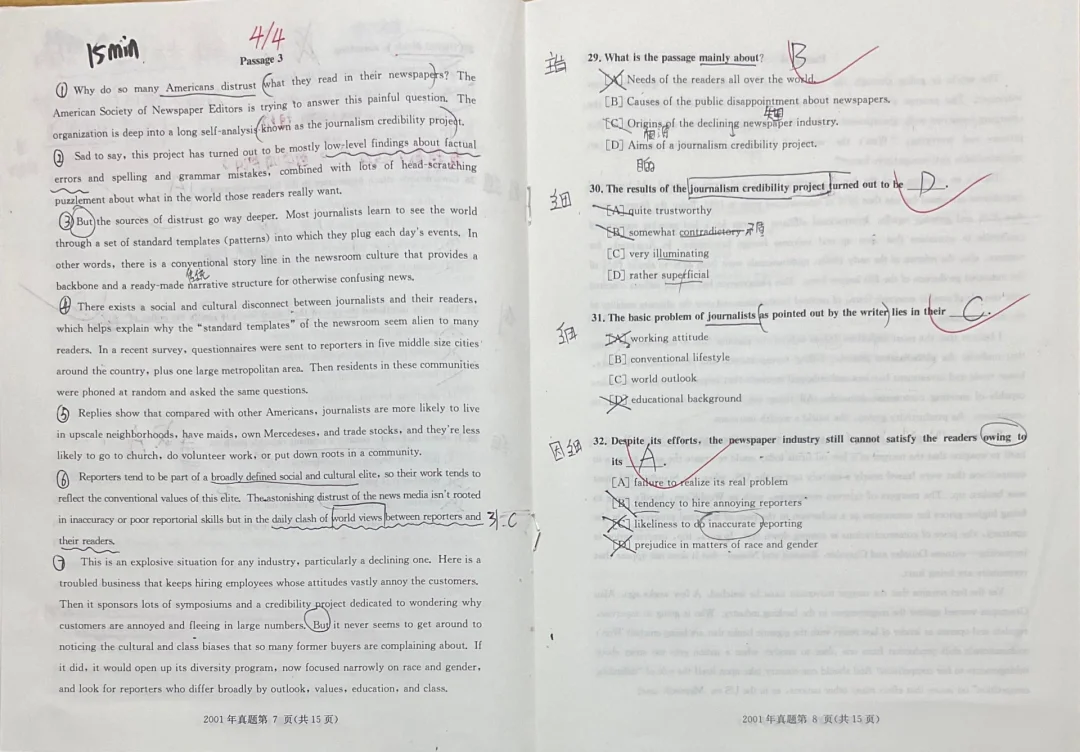 15min
4/4
Passage 3
① Why do so many Americans distrust what they read in their newspapers? The
American Society of Newspaper Editors is trying to answer this painful question. The
organization is deep into a long self-analysis known as the journalism credibility project.
② Sad to say, this project has turned out to be mostly low-level findings about factual
errors and spelling and grammar mistakes, combined with lots of head-scratching
puzzlement about what in the world those readers really want.
③ But the sources of distrust go way deeper. Most journalists learn to see the world
through a set of standard templates (patterns) into which they plug each day's events. In
other words, there is a conventional story line in the newsroom culture that provides a
传统
backbone and a ready-made narrative structure for otherwise confusing news.
④ There exists a social and cultural disconnect between journalists and their readers,
which helps explain why the "standard templates" of the newsroom seem alien to many
readers. In a recent survey, questionnaires were sent to reporters in five middle size cities
around the country, plus one large metropolitan area. Then residents in these communities
were phoned at random and asked the same questions.
⑤ Replies show that compared with other Americans, journalists are more likely to live
in upscale neighborhoods, have maids, own Mercedeses, and trade stocks, and they're less
likely to go to church, do volunteer work, or put down roots in a community.
⑥ Reporters tend to be part of a broadly defined social and cultural elite, so their work tends to
reflect the conventional values of this elite. The astonishing distrust of the news media isn't rooted
in inaccuracy or poor reportorial skills but in the daily clash of world views between reporters and 31-C
their readers.
⑦ This is an explosive situation for any industry, particularly a declining one. Here is a
troubled business that keeps hiring employees whose attitudes vastly annoy the customers.
Then it sponsors lots of symposiums and a credibility project dedicated to wondering why
customers are annoyed and fleeing in large numbers. But it never seems to get around to
noticing the cultural and class biases that so many former buyers are complaining about. If
it did, it would open up its diversity program, now focused narrowly on race and gender,
and look for reporters who differ broadly by outlook, values, education, and class.
2001 年真题第 7 页(共 15 页)
29. What is the passage mainly about? B
[A] Needs of the readers all over the world.
[B] Causes of the public disappointment about newspapers.
[C] Origins of the declining newspaper industry.
[D] Aims of a journalism credibility project.
目的
细 30. The results of the journalism credibility project turned out to be D.
[A] quite trustworthy
[B] somewhat contradictory 矛盾
[C] very illuminating
[D] rather superficial
细 31. The basic problem of journalists as pointed out by the writer lies in their C.
[A] working attitude
[B] conventional lifestyle
[C] world outlook
[D] educational background
因细 32. Despite its efforts, the newspaper industry still cannot satisfy the readers owing to
its A.
[A] failure to realize its real problem
[B] tendency to hire annoying reporters
[C] likeliness to do inaccurate reporting
[D] prejudice in matters of race and gender
2001 年真题第 8 页(共 15 页)